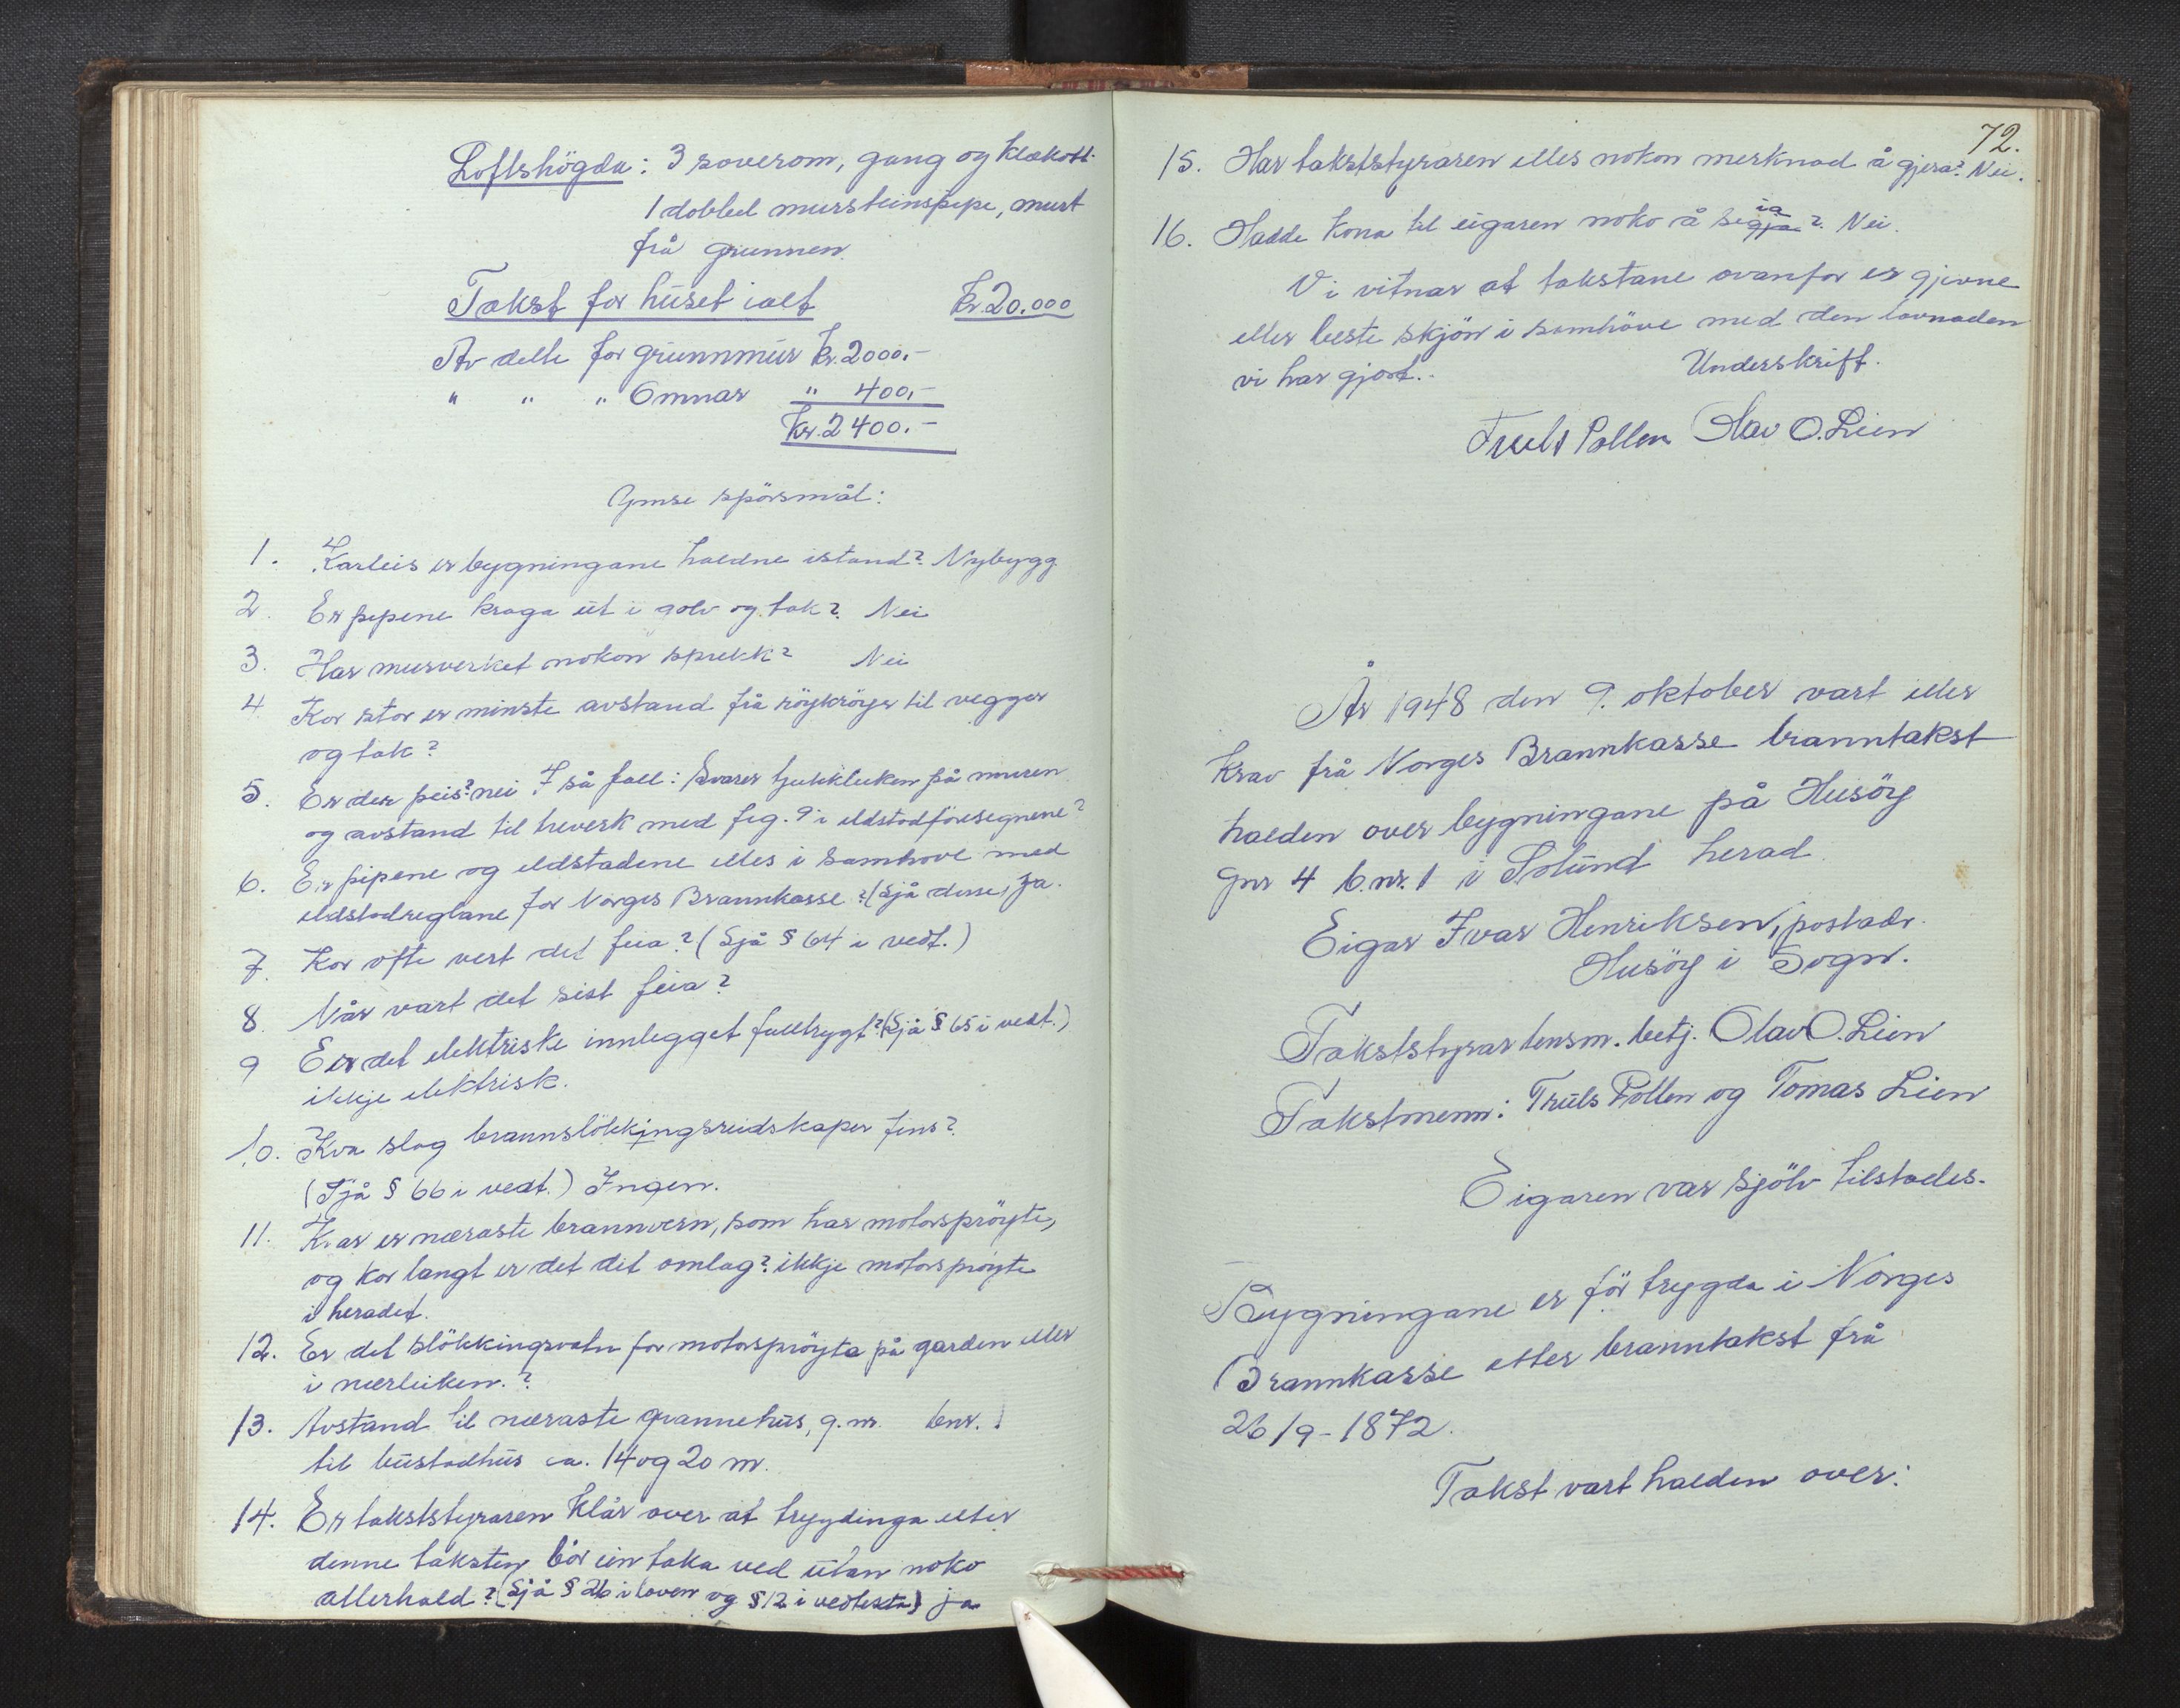 Loftshögda: 3 soverom, gang og klekott.
1 dobbel mursteinspipe, murt
frå grunnen.
Takst for huset ialt Kr. 20.000
Av dette for grunnmur Kr. 2000.-
" " " Omnar " 400,-
Kr. 2400.-
Ymse spörsmål:
1. Korleis er bygningane haldne istand? Nybygg
2. Er pipene kraga ut i golv og tak? Nei
3. Har murverket nokon sprekk? Nei
4 Kor stor er minste avstand frå röykröyr til vegger
og tak?
5. Er der peis? nei I så fall: Svarer tjukkleiken på muren
og avstand til treverk med fig. 9 i eldstadföresegnene?
6. Er pipene og eldstadene elles i samhove med
eldstadreglane for Norges Brannkasse? (Sjå desse) ja.
7. Kor ofte vert det feia? (Sjå § 64 i vedt.)
8. Når vart det sist feia?
9 Er det elektriske innlegget fulltrygt? (Sjå § 65 i vedt.)
ikkje elektrisk.
10. Kva slag brannslökkjingsreidskaper fins?
(Sjå § 66 i vedt.) Ingen.
11. Kvar er næraste brannvern, som har motorspröyte,
og kor langt er det dit omlag? ikkje motorspröyte
i heradet.
12. Er det slökkingsvatn for motorspröyta på garden eller
i nærleiken.?
13. Avstand til næraste grannehus, g.nr. bnr. 1
til bustadhus ca. 14 og 20 m.
14. Er takststyraren klår over at trygdinga etter
denne taksten bör ein taka ved utan noko
atterhald? (Sjå § 26 i loven og § 12 i vedtekta) ja
72.
15. Har takststyraren elles nokon merknad å gjera? Nei.
ia
16. Hadde kona til eigaren noko å segja? Nei.
Vi vitnar at takstane ovanfor er gjevne
etter beste skjön i samhöve med den lovnaden
vi har gjort.. Underskrift.
Truls Pollen Olav O. Lien
År 1948 den 9. oktober vart etter
krav frå Norges Brannkasse branntakst
halden over bygningane på Husöy
gnr 4 b.nr. 1 i Solund herad.
Eigar Ivar Henriksen, postadr.
Husöy i Sogn.
Takststyrar lensm. betj. Olav O. Lien
Takstmenn: Truls Pollen og Tomas Lien
Eigaren var sjölv tilstades.
Bygningane er för trygda i Norges
Brannkasse etter branntakst frå
26/9-1872.
Takst vart halden over: